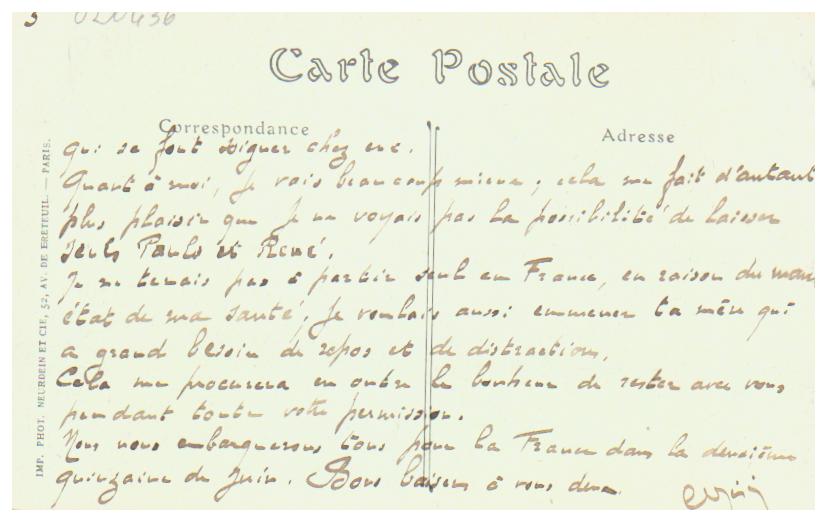 Carte Postale
Correspondance
Adresse
IMP. PHOT. NEURDEIN ET CIE, 52, AV. DE BRETEUIL. — PARIS.
qui se font soigner chez eux.
Quant à moi, je vais beaucoup mieux ; cela me fait d'autant
plus plaisir que je ne voyais pas la possibilité de laisser
seuls Paulo et René.
Je ne tenais pas à partir seul en France, en raison du mauv
état de ma santé ; je voulais aussi emmener ta mère qui
a grand besoin de repos et de distractions.
Cela me procurera en outre le bonheur de rester avec vous
pendant toute votre permission.
Nous nous embarquerons tous pour la France dans la deuxième
quinzaine de Juin. Bons baisers à vous deux.